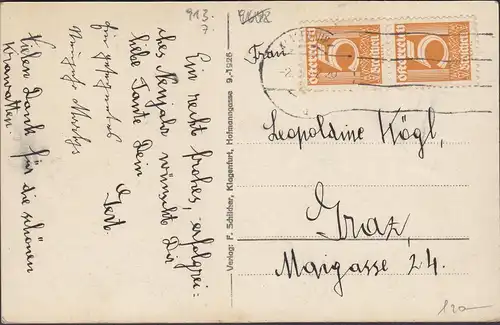 913.
7
Ein recht frohes, erfolgrei=
ches Neujahr wünscht Dir
liebe Tante Dein
Gert.
Vielen Dank für die schönen
Krawatten.
Verlag: F. Schilcher, Klagenfurt, Hofmanngasse 9.-1926
Österreich
5
Groschen
Österreich
5
Groschen
Frau
Leopoldine Kögl,
Graz,
Maigasse 24.
120